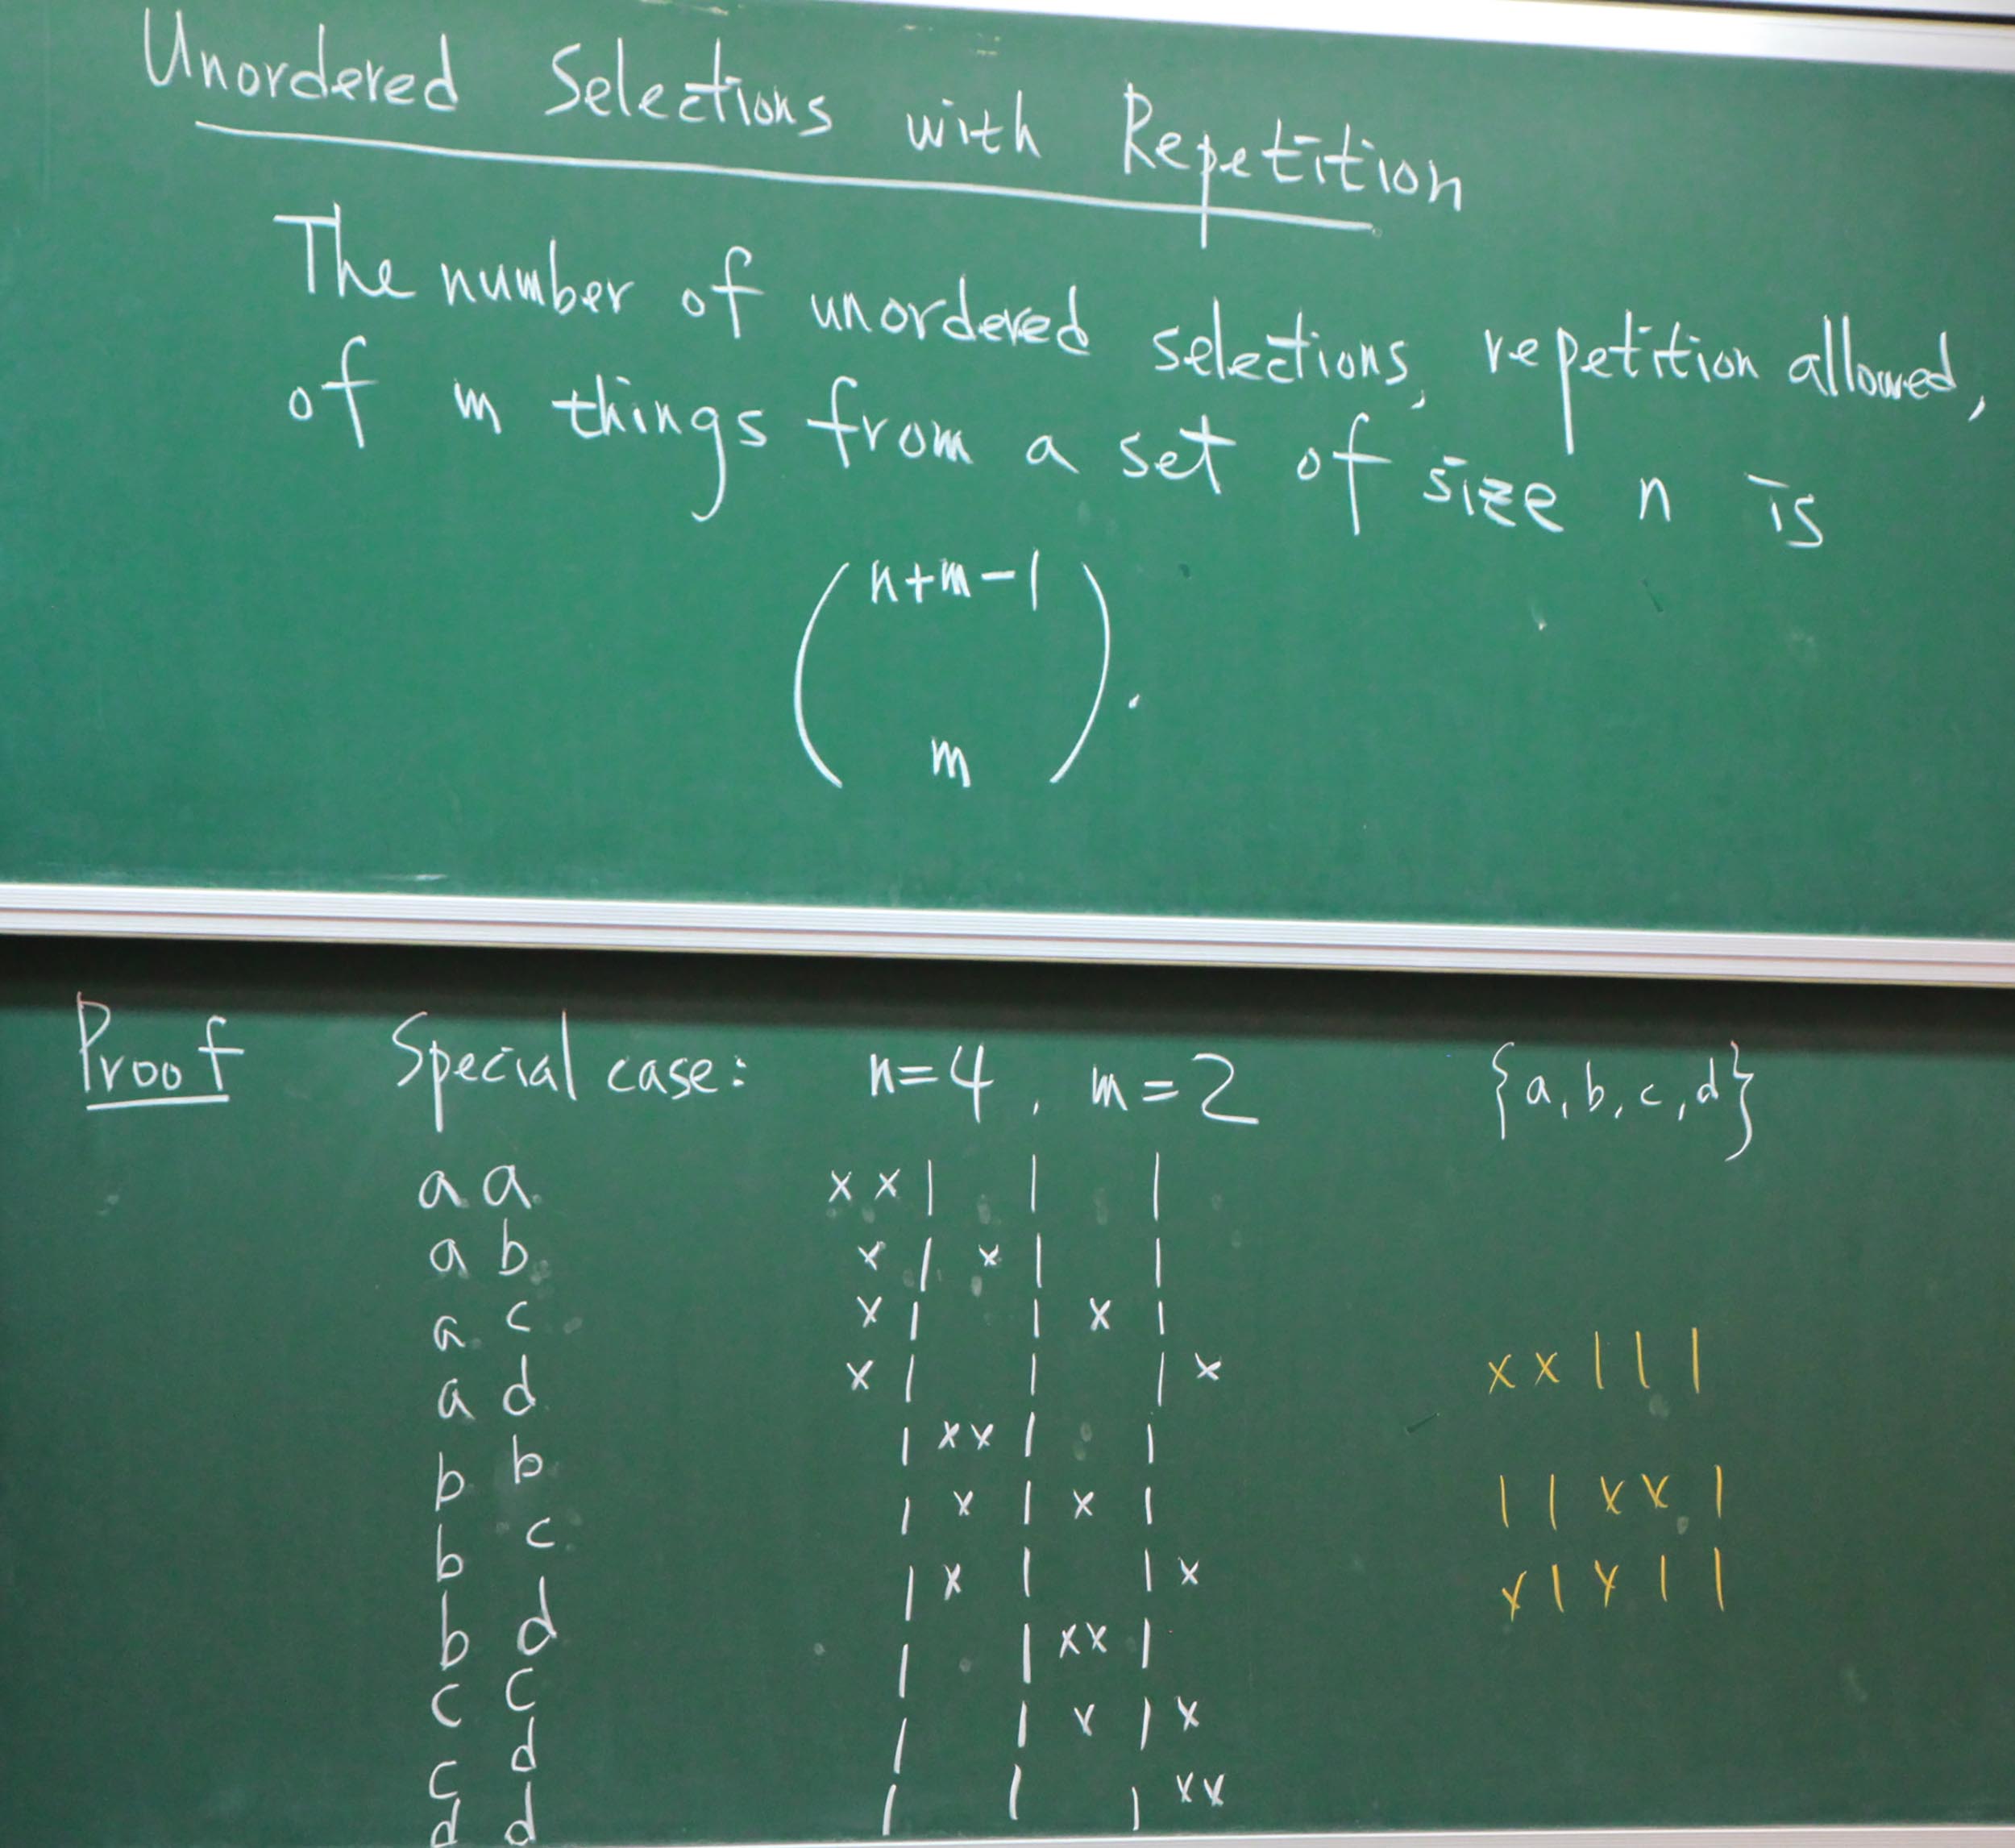 Unordered Selections with Repetition
The number of unordered selections, repetition allowed,
of m things from a set of size n is
(n+m-1
m).
Proof Special case: n=4, m=2 {a,b,c,d}
a a x x | | |
a b x | x | |
a c x | | x |
a d x | | | x
x x | | |
b b | x x | |
b c | x | x |
| | x x |
b d | x | | x
x | x | |
c c | | x x |
c d | | x | x
d d | | | x x